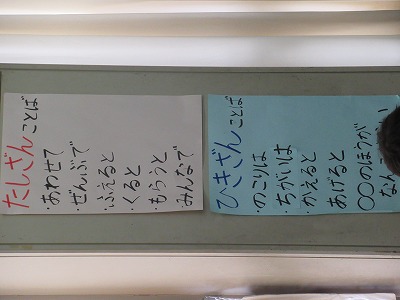 たしざん ことば
・あわせて
・ぜんぶで
・ふえると
・くると
・もらうと
・みんなで
ひきざん ことば
・のこりは
・ちがいは
・かえると
・あげると
・○○のほうが
なん